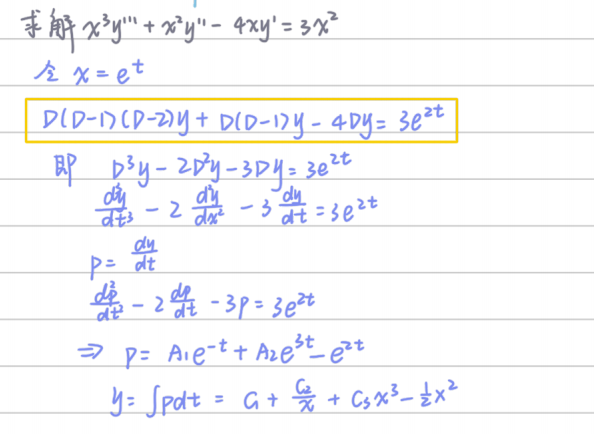 求解 x³y''' + x²y'' - 4xy' = 3x²
令 x = e^t
D(D-1)(D-2)y + D(D-1)y - 4Dy = 3e^{2t}
即 D³y - 2D²y - 3Dy = 3e^{2t}
d³y/dt³ - 2 d²y/dx² - 3 dy/dt = 3e^{2t}
p = dy/dt
d²p/dt² - 2 dp/dt - 3p = 3e^{2t}
⇒ p = A₁e^{-t} + A₂e^{3t} - e^{2t}
y = ∫pdt = C₁ + C₂/x + C₃x³ - ½x²